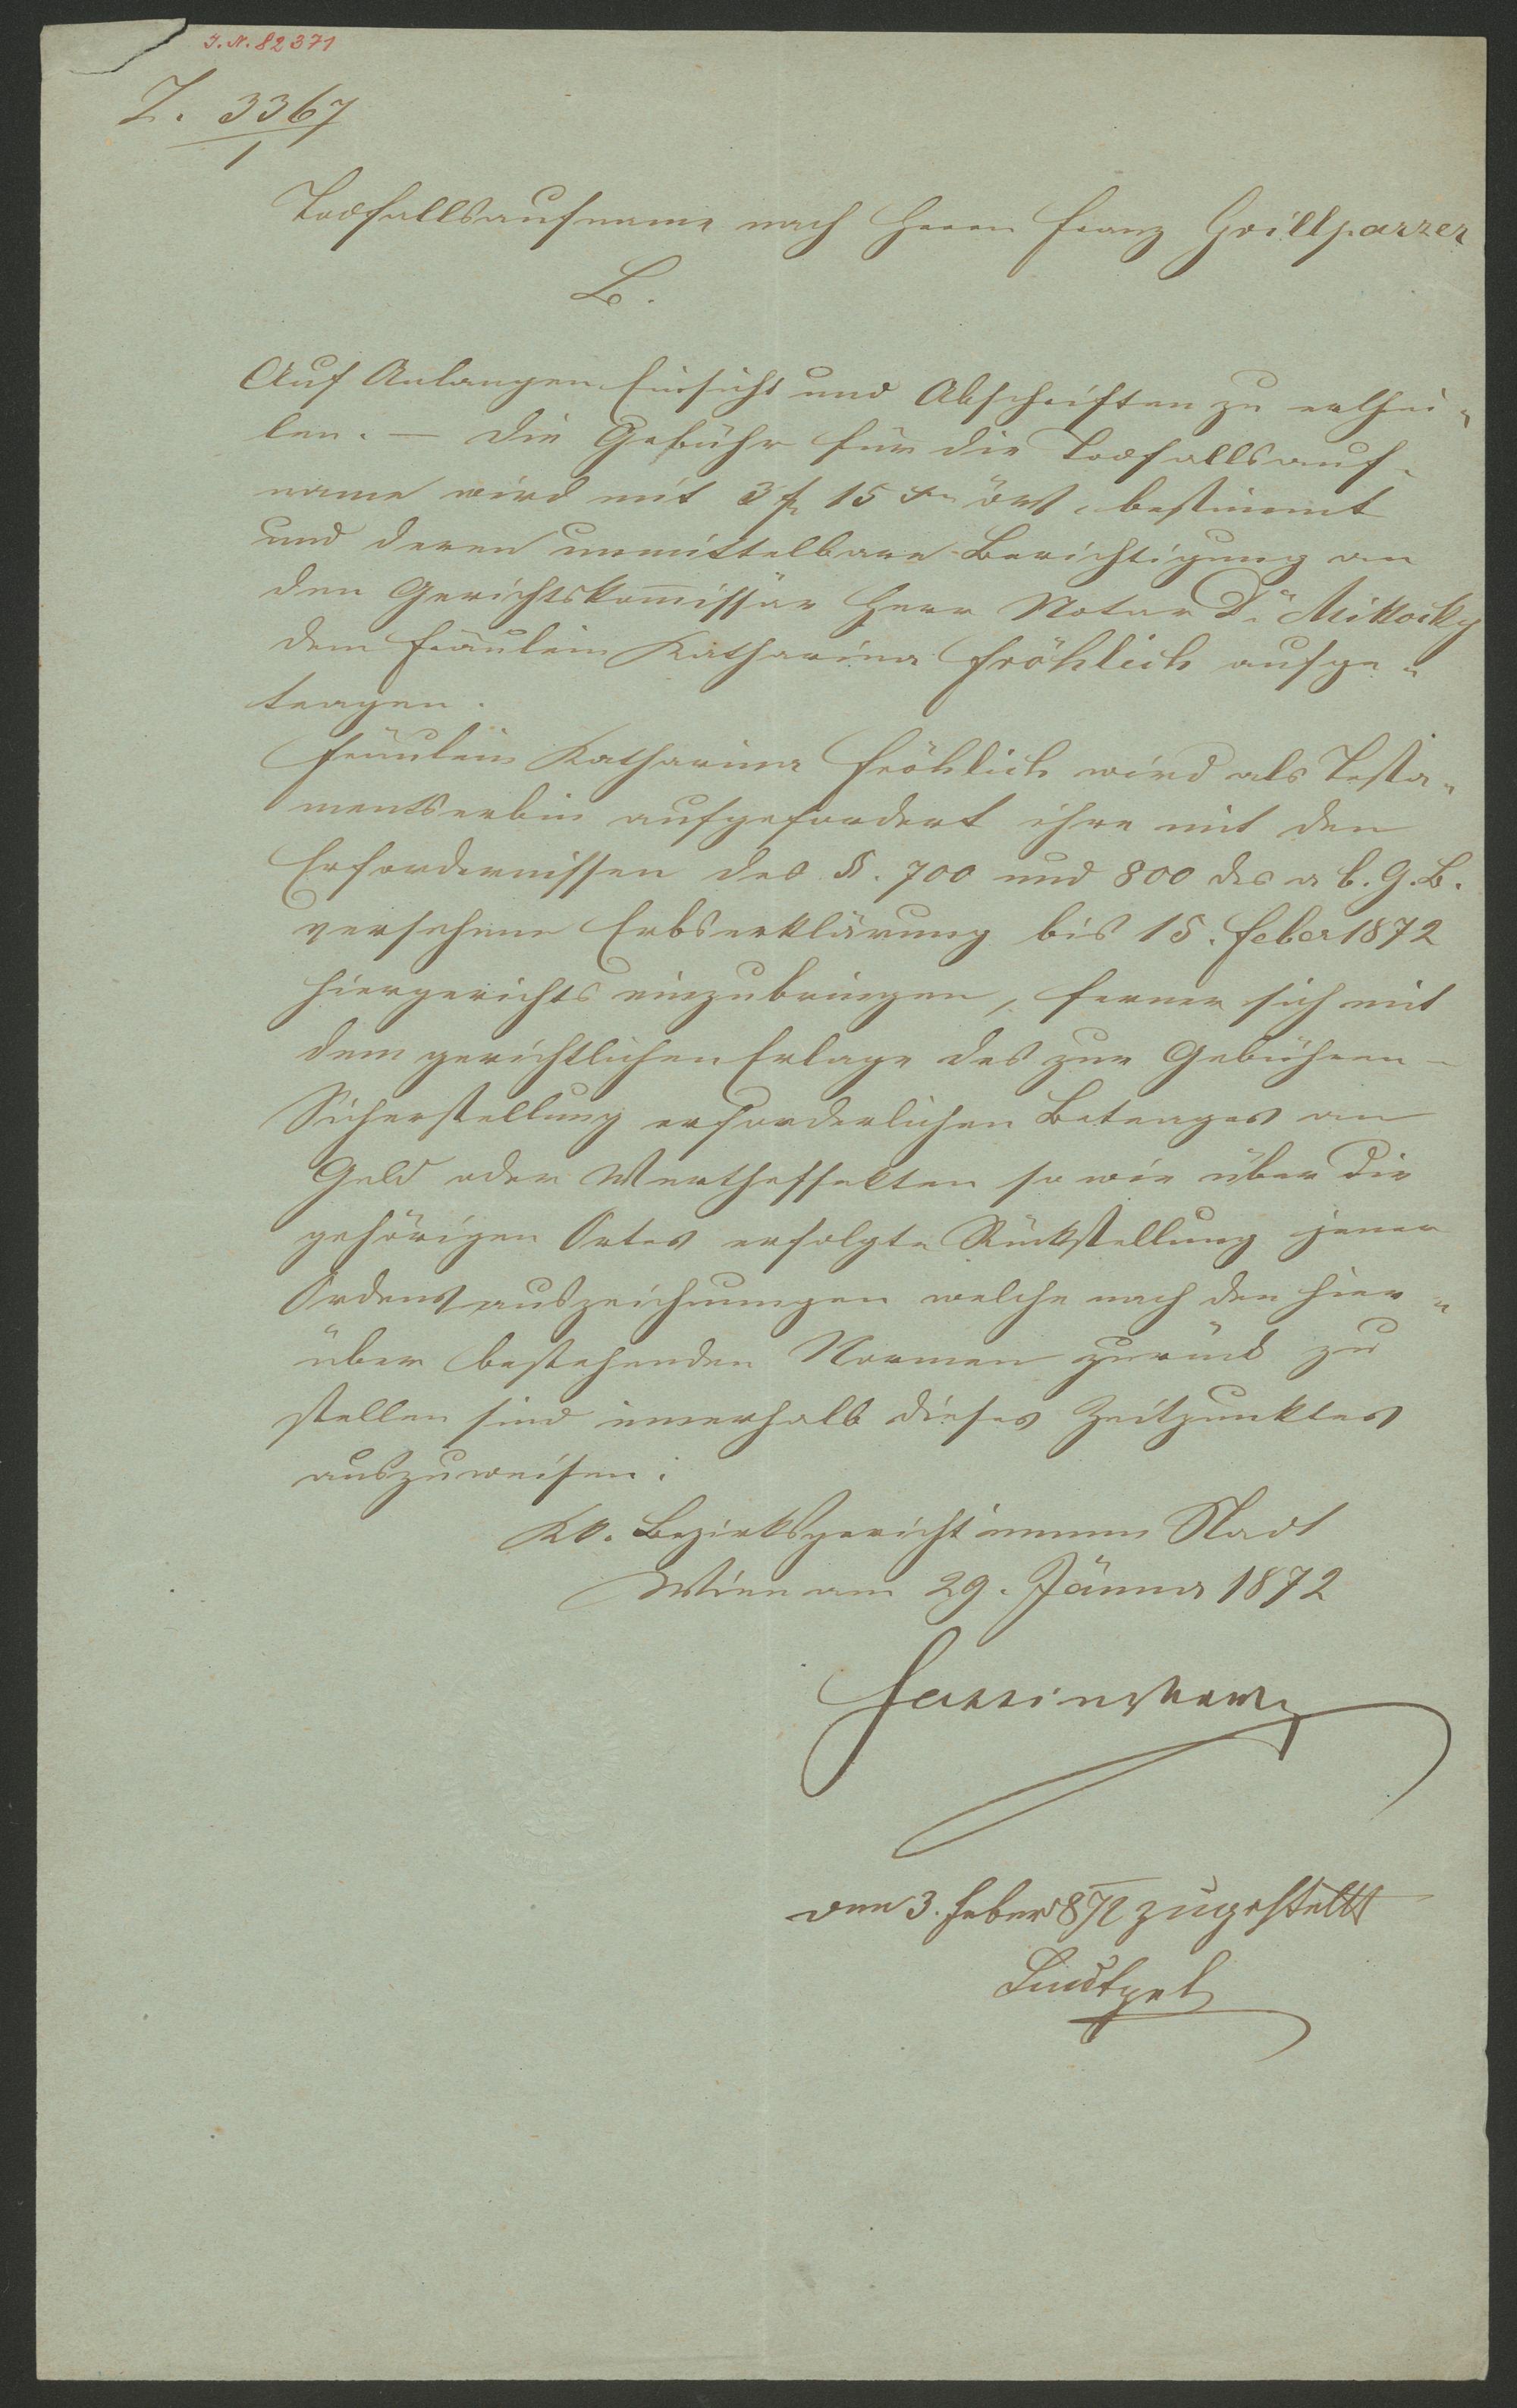 J. N. 82371
Z. 3367
1
Todfallsaufname nach Herrn Franz Grillparzer
B.
Auf Anlangen Einsicht und Abschriften zu erthei-
len. — Die Gebühr für die Todfallsauf-
name wird mit 3 f 15 xr öW. bestimmt
und deren unmittelbare Berichtigung an
den Gerichtskom̅issär Herr Notar Dr. Mikocky
dem Fräulein Katharina Fröhlich aufge-
tragen.
Fräulein Katharina Fröhlich wird als Testa-
mentserbin aufgefordert ihre mit den
Erfordernissen des §. 700 und 800 des a b. G. B.
versehene Erbserklärung bis 15. Feber 1872
hiergerichts einzubringen, ferner sich mit
dem gerichtlichen Erlage des zur Gebühren-
Sicherstellung erforderlichen Betrages an
Geld oder Wertheffekten so wie über die
gehörigen Ortes erfolgte Rückstellung jener
Ordensauszeichnungen welche nach den hier-
über bestehenden Normen zurück zu
stellen sind innerhalb dieses Zeitpunktes
auszuweisen.
KK. Bezirksgericht innere Stadt
Wien am 29. Jänner 1872
den 3. Feber 872 zugestellt